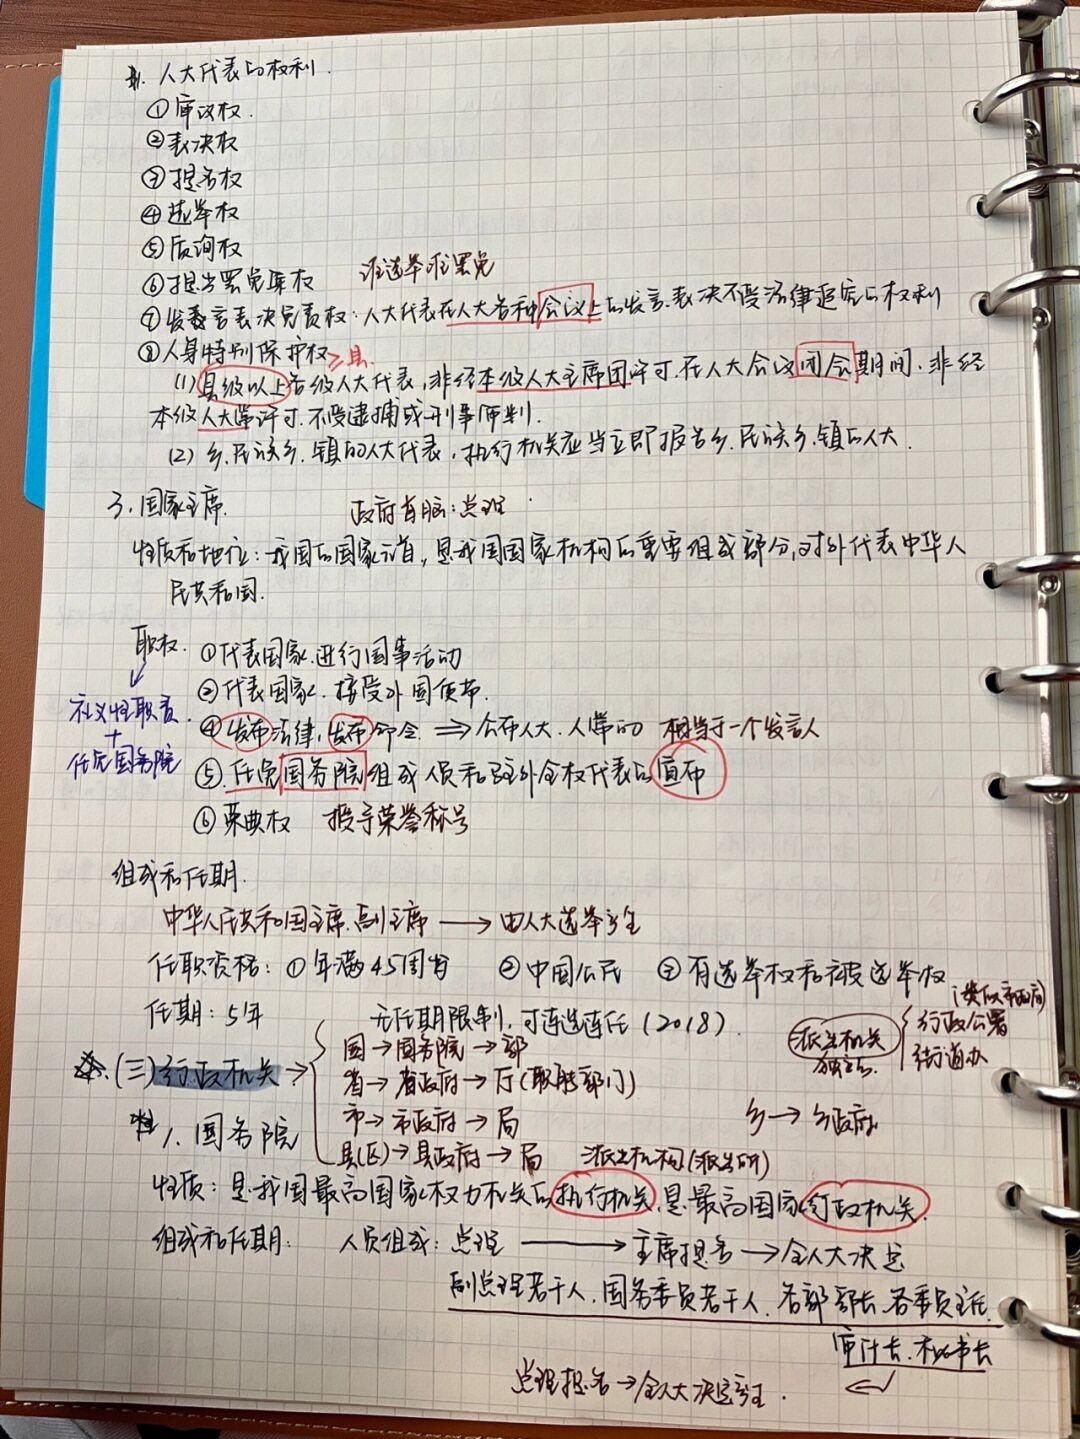 人大代表的权利.
①审议权.
②表决权
③提名权
④选举权
⑤质询权
⑥提出罢免案权 谁选举谁罢免
⑦发言表决免责权:人大代表在人大各种会议上的发言.表决不受法律追究的权利
⑧人身特别保护权 ≥县
(1)县级以上各级人大代表,非经本级人大主席团许可.在人大会议闭会期间.非经
本级人大常许可.不受逮捕或刑事审判.
(2)乡.民族乡.镇的人大代表,执行机关应当立即报告乡.民族乡.镇的人大.
3.国家主席. 政府首脑:总理
性质和地位:我国的国家元首,是我国国家机构的重要组成部分,对外代表中华人
民共和国.
职权. ①代表国家.进行国事活动
②代表国家.接受外国使节.
礼仪性职责 ④发布法律,发布命令 ⇒ 公布人大.人常的 相当于一个发言人
+
任免国务院 ⑤.任免国务院组成人员和驻外全权代表的宣布
⑥荣典权 授予荣誉称号
组成和任期.
中华人民共和国主席.副主席 → 由人大选举产生
任职资格: ①年满45周岁 ②中国公民 ③有选举权和被选举权
任期:5年 无任期限制,可连选连任(2018).
派出机关 独立 行政公署 街道办
(三)行政机关→ 国→国务院→部
省→省政府→厅(职能部门)
市→市政府→局 乡→乡政府
1.国务院 县(区)→县政府→局 派出机构(派出所)
性质:是我国最高国家权力机关的执行机关.是最高国家行政机关.
组成和任期: 人员组成:总理 → 主席提名→全人大决定
副总理若干人.国务委员若干人.各部部长.各委员主任.
审计长.秘书长
总理提名→全人大决定产生.